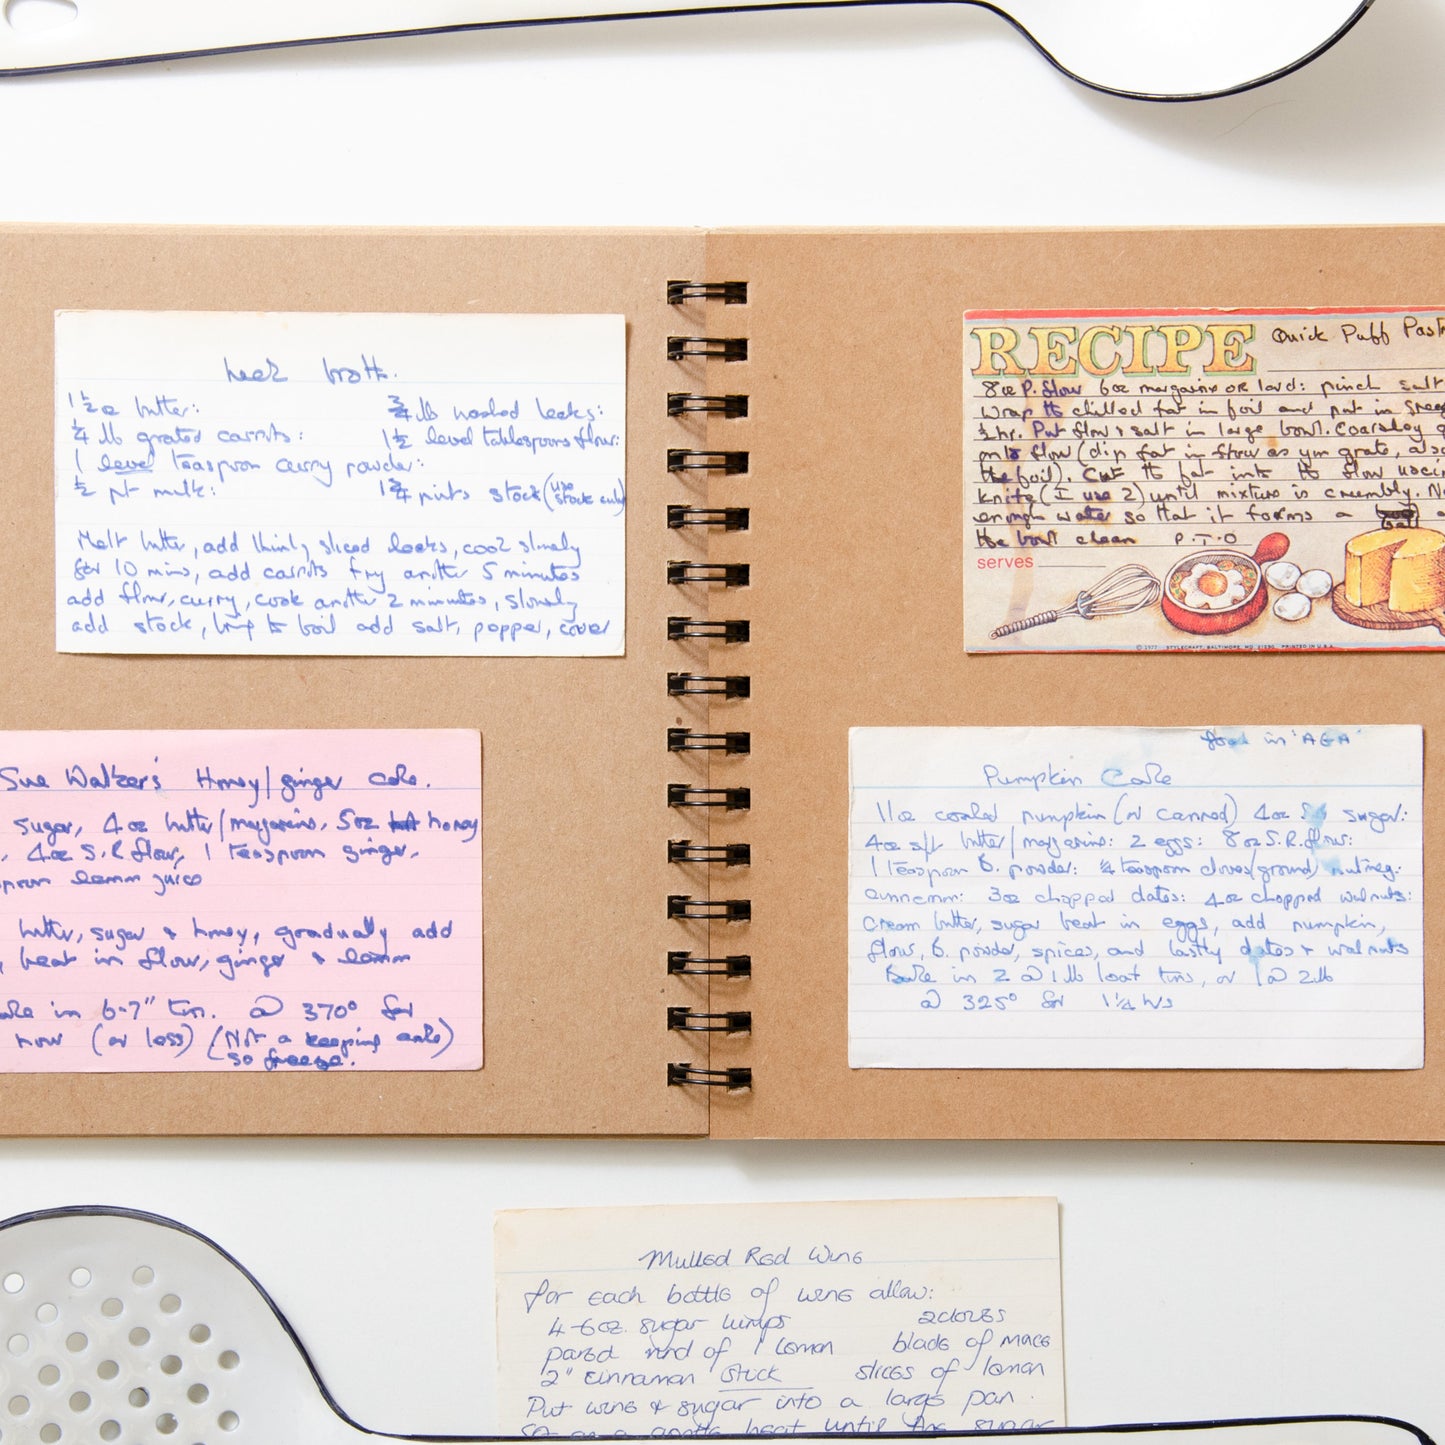 Leek broth.
1 1/2 oz butter:
3/4 lb washed leeks:
1/4 lb grated carrots:
1 1/2 level tablespoons flour:
1 level teaspoon curry powder:
1/2 pt milk:
1 3/4 pints stock (use stock cube)
Melt butter, add thinly sliced leeks, cook slowly
for 10 mins, add carrots fry another 5 minutes
add flour, curry, cook another 2 minutes, slowly
add stock, bring to boil add salt, pepper, cover
RECIPE Quick Puff Past
8oz P. flour 6oz margarine OR lard: pinch salt
Wrap the chilled fat in foil and put in
1/2 hr. Put flour & salt in large bowl. Coarsley
into flour (dip fat in flour as you grate, also
the foil). Cut the fat into the flour
knife (I use 2) until mixture is crumbly.
enough water so that it forms a ball
the bowl clean P.T.O
serves
© 1977 STYLECRAFT, BALTIMORE, MD. 21230 PRINTED IN U.S.A.
Sue Walker's Honey/ginger cake.
sugar, 4oz butter/margarine, 5oz honey
, 4oz S.R flour, 1 teaspoon ginger,
lemon juice
butter, sugar & honey, gradually add
, beat in flour, ginger & lemon
in 6-7" tin. @ 370° for
hour (or less) (Not a keeping cake)
so freeze.
in 'AGA'
Pumpkin Cake
11oz cooked pumpkin (or canned) 4oz sugar:
4oz soft butter/margarine: 2 eggs: 8oz S.R. flour:
1 teaspoon B. powder: 1/4 teaspoon cloves/ground nutmeg:
cinnamon: 3oz chopped dates: 4oz chopped walnuts:
Cream butter, sugar beat in eggs, add pumpkin,
flour, B. powder, spices, and lastly dates & walnuts
Bake in 2 @ 1lb loaf tins, or 1 @ 2lb
@ 325° for 1 1/4 hrs
Mulled Red Wine
for each bottle of wine allow:
4-6oz. sugar lumps
2 cloves
pared rind of 1 lemon
blade of mace
2" cinnamon stick
slices of lemon
Put wine & sugar into a large pan.
Set on a gentle heat until the sugar